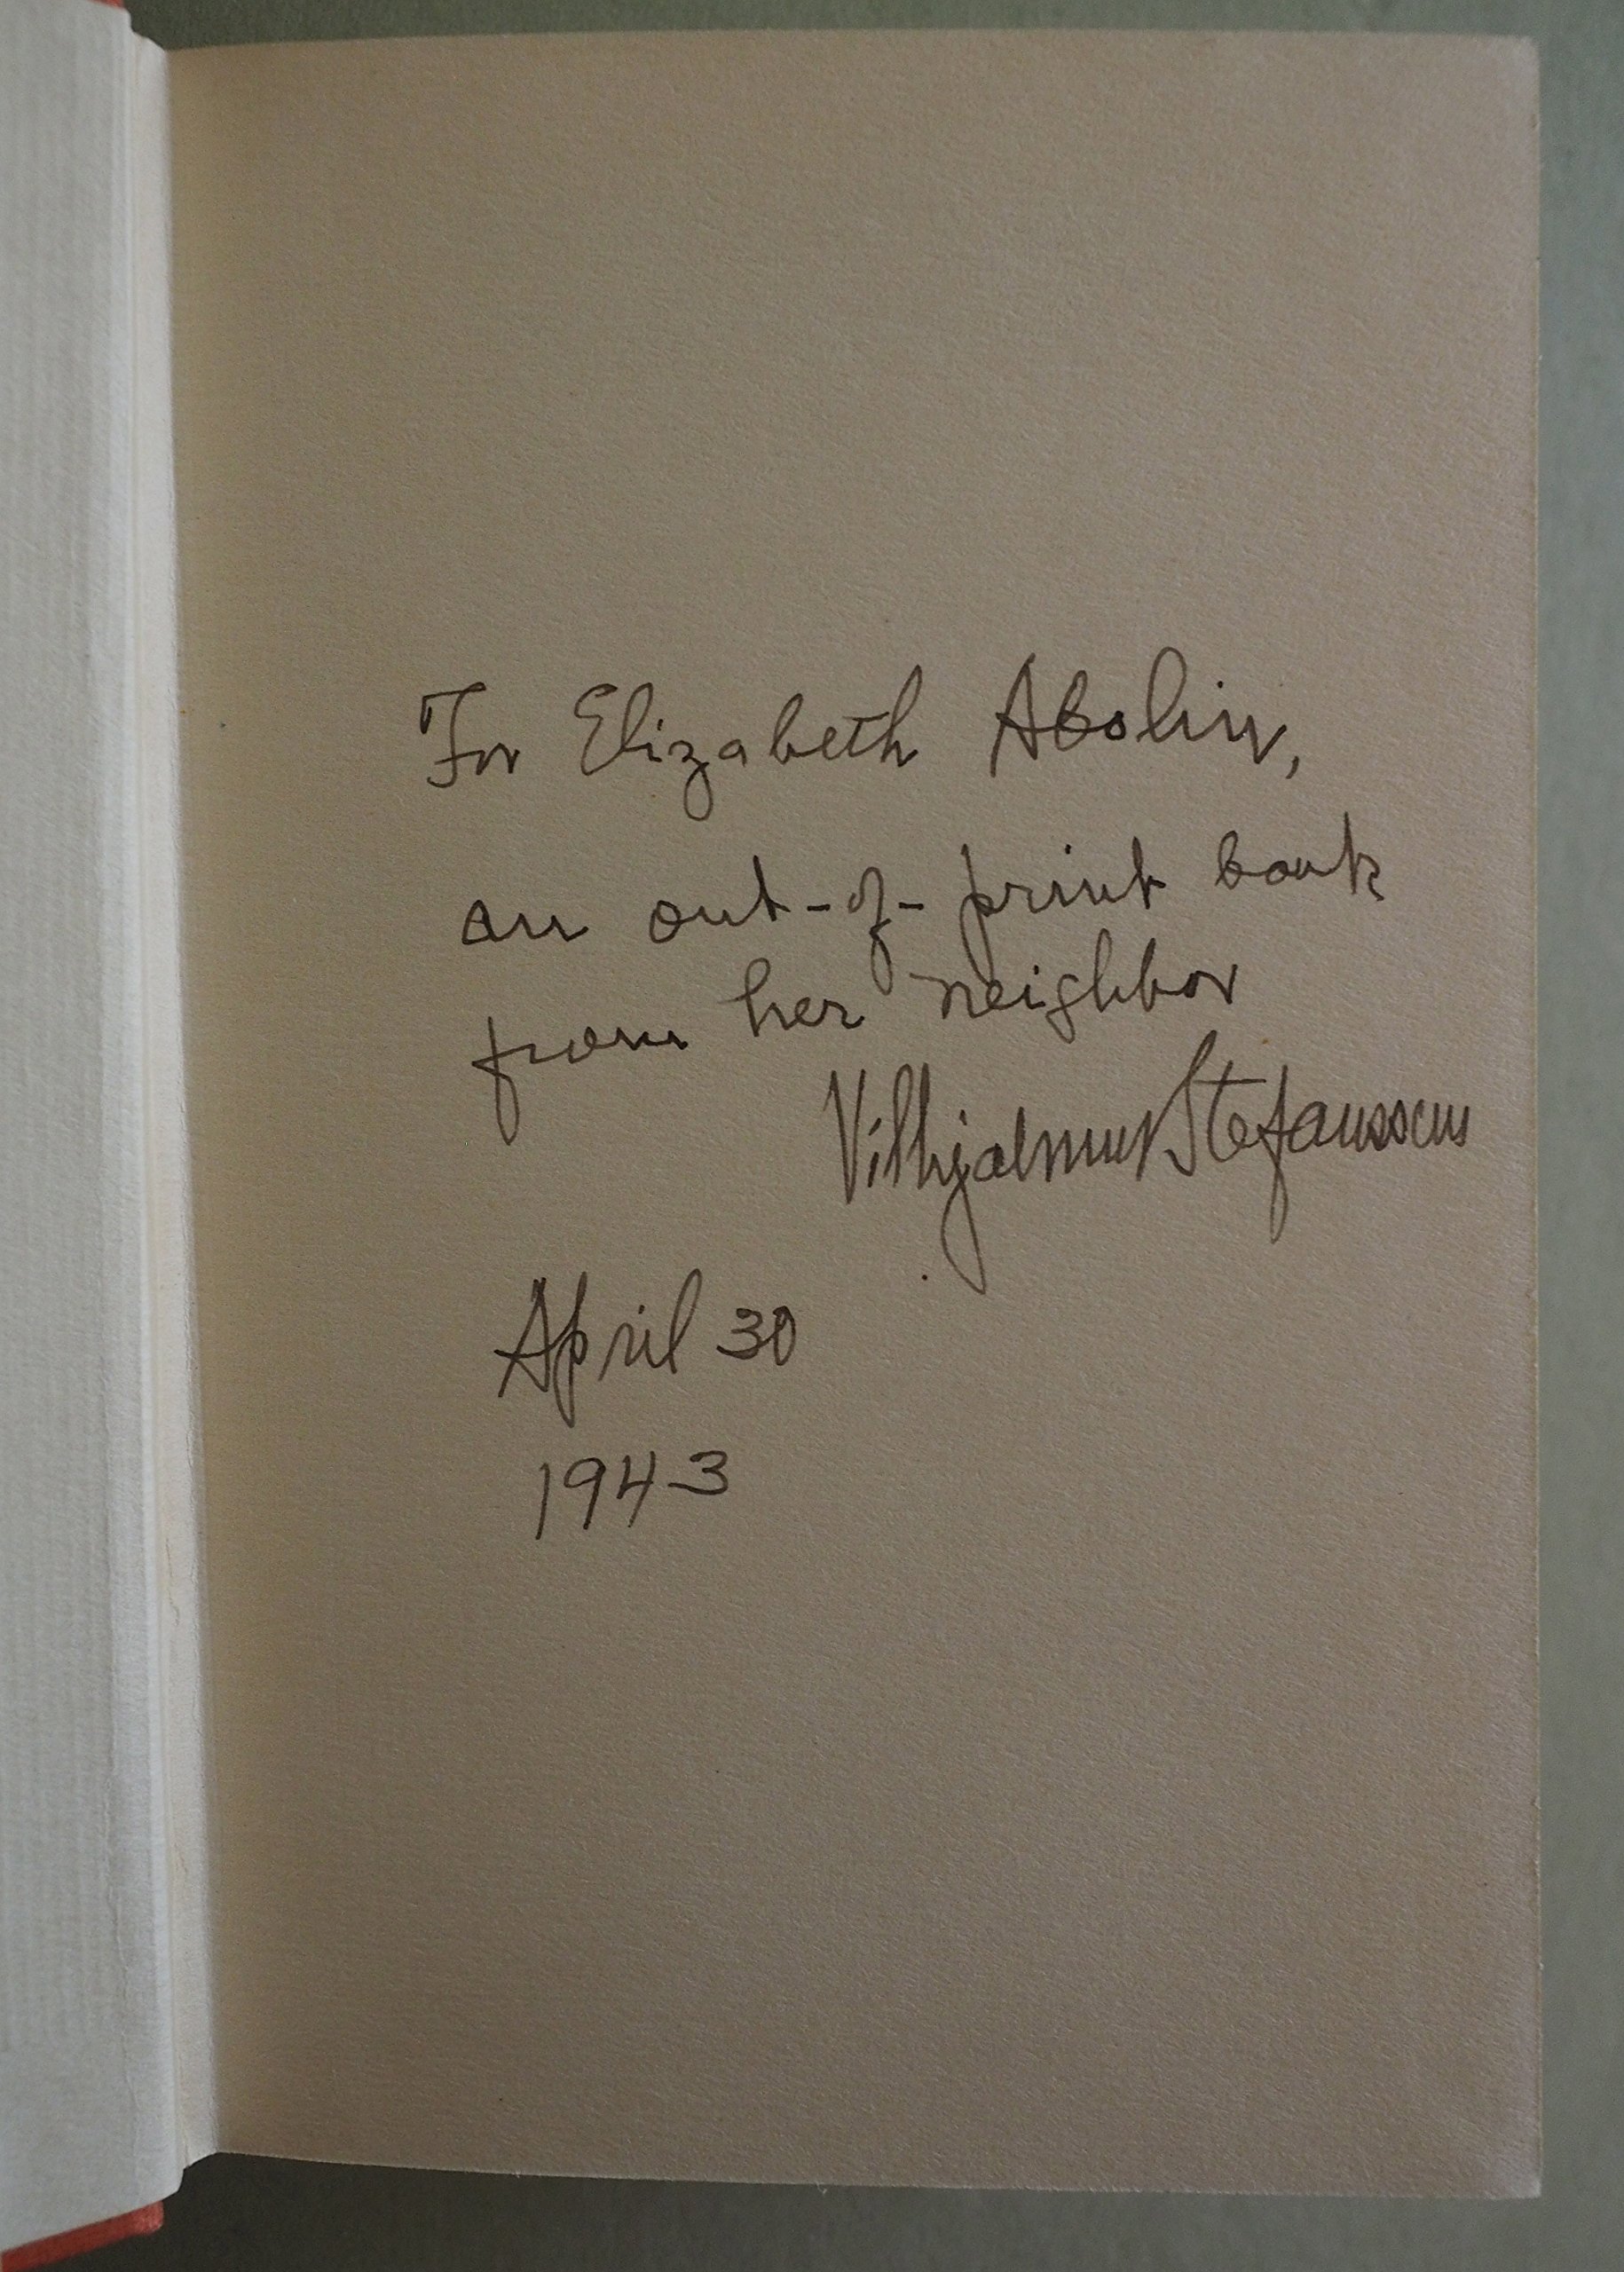 For Elizabeth Abolin,
an out-of-print book
from her neighbor
Vilhjalmur Stefansson
April 30
1943